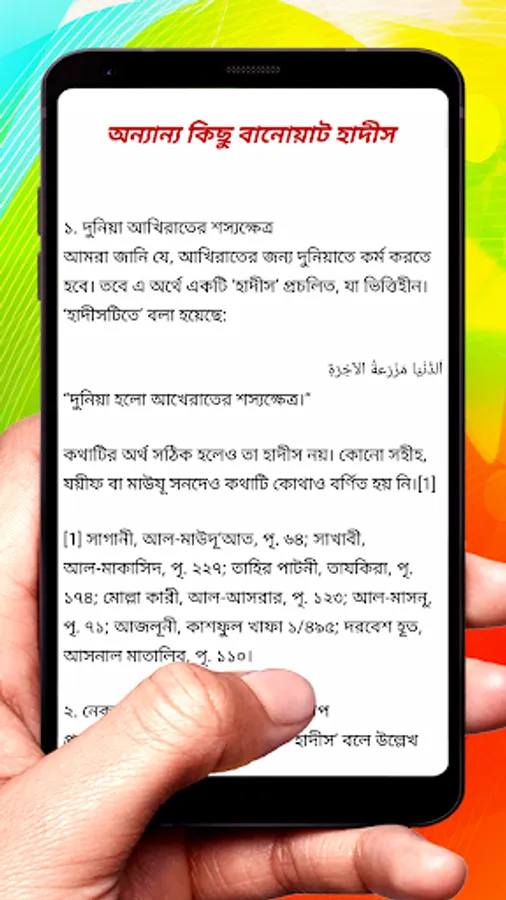 অন্যান্য কিছু বানোয়াট হাদীস
১. দুনিয়া আখিরাতের শস্যক্ষেত্র
আমরা জানি যে, আখিরাতের জন্য দুনিয়াতে কর্ম করতে
হবে। তবে এ অর্থে একটি 'হাদীস' প্রচলিত, যা ভিত্তিহীন।
'হাদীসটিতে' বলা হয়েছে:
اَلدُّنْيَا مَزْرَعَةُ الآخِرَةِ
"দুনিয়া হলো আখেরাতের শস্যক্ষেত্র।"
কথাটির অর্থ সঠিক হলেও তা হাদীস নয়। কোনো সহীহ,
যয়ীফ বা মাউযূ সনদেও কথাটি কোথাও বর্ণিত হয় নি।[1]
[1] সাগানী, আল-মাউদূ'আত, পৃ. ৬৪; সাখাবী,
আল-মাকাসিদ, পৃ. ২২৭; তাহির পাটনী, তাযকিরা, পৃ.
১৭৪; মোল্লা কারী, আল-আসরার, পৃ. ১২৩; আল-মাসনূ,
পৃ. ৭১; আজলূনী, কাশফুল খাফা ১/৪৯৫; দরবেশ হূত,
আসনাল মাতালিব, পৃ. ১১০।
২. নেক
হাদীস' বলে উল্লেখ